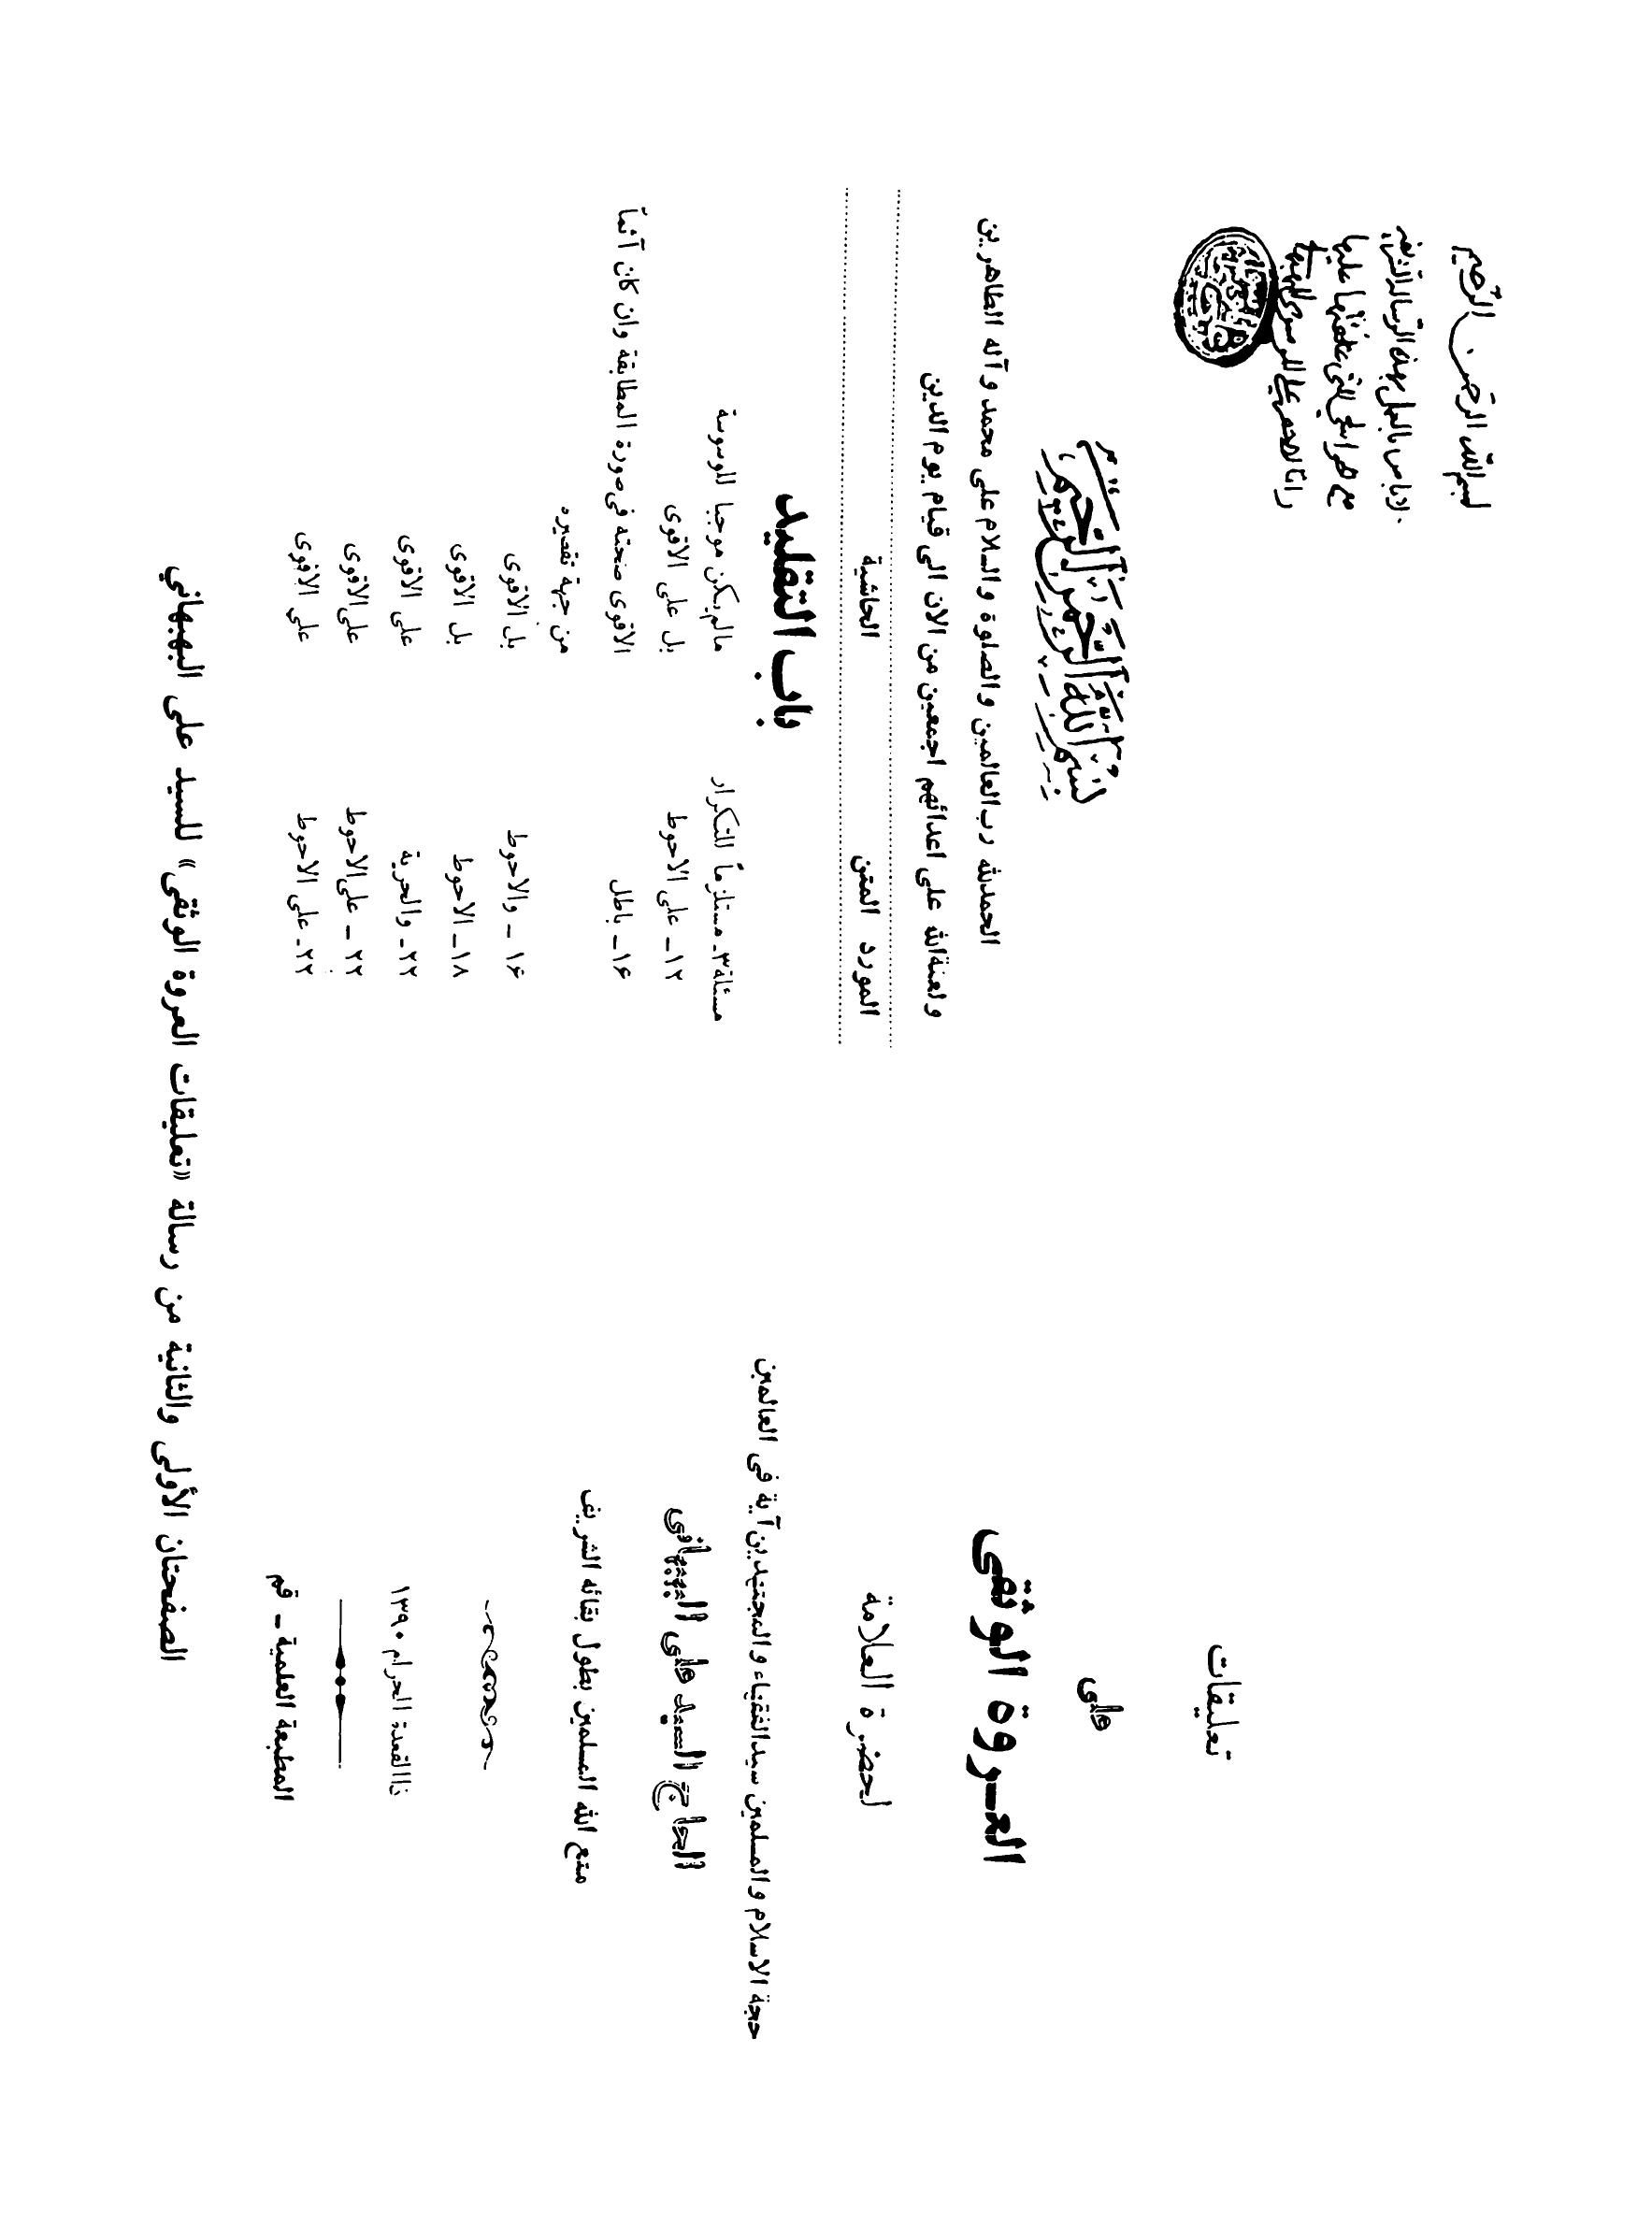 تعليقات
على
العروة الوثقى
لحضرة العلامة
حجة الاسلام والمسلمين سيد الفقهاء والمجتهدين آية فى العالمين
الحاج السيد على البهبهانى
متع الله المسلمين بطول بقائه الشريف
ذا القعدة الحرام ١٣٩٠
المطبعة العلمية ـ قم
بسم الله الرحمن الرحيم
لا باس بالعمل بهذه الرسالة الشريفة
مع حواشى التى علقتها عليها
بسم الله الرحمن الرحيم
الحمدلله رب العالمين والصلوة والسلام على محمد وآله الطاهرين
ولعنة الله على اعدائهم اجمعين من الان الى قيام يوم الدين
المورد المتن الحاشية
باب التقليد
مسئلة ٣ـ مستلزماً للتكرار مالم يكن موجبا للوسوسة
١٢ـ على الاحوط بل على الاقوى
١۶ـ باطل الاقوى صحته فى صورة المطابقة وان كان آثماً
من جهة تقصيره
١۶ ـ والاحوط بل الاقوى
١٨ـ الاحوط بل الاقوى
٢٢ـ والحرية على الاقوى
٢٢ ـ على الاحوط على الاقوى
٢٢ـ على الاحوط على الاقوى
الصفحتان الأولى والثانية من رسالة «تعليقات العروة الوثقى» للسيد على البهبهاني